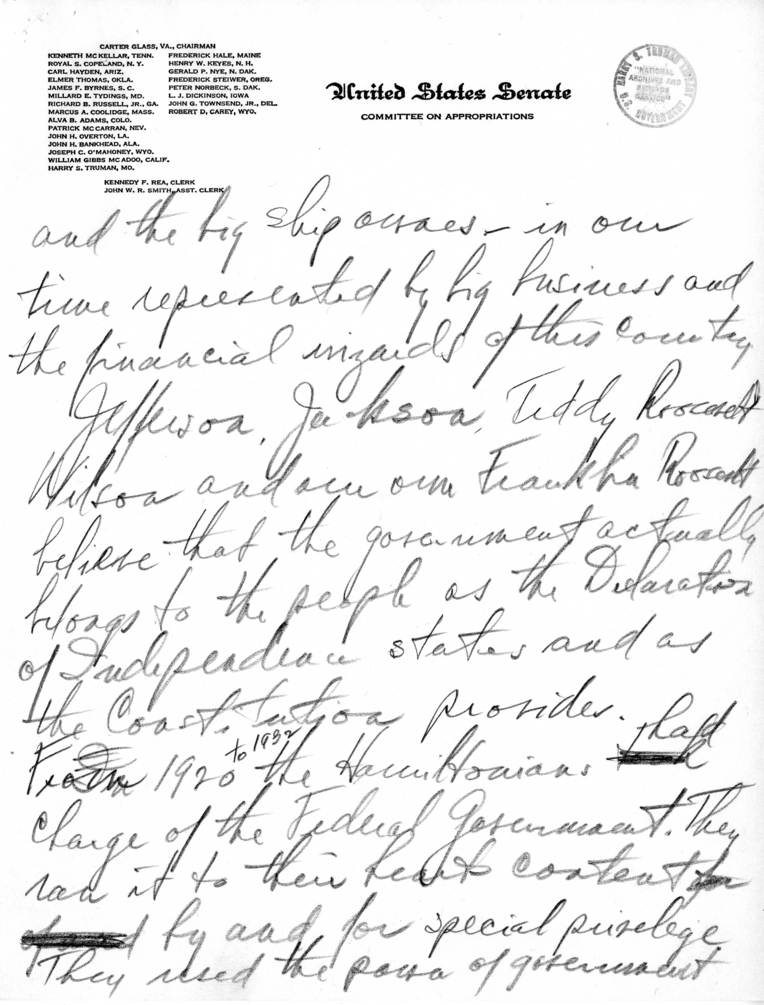 CARTER GLASS, VA., CHAIRMAN
KENNETH MCKELLAR, TENN.
ROYAL S. COPELAND, N. Y.
CARL HAYDEN, ARIZ.
ELMER THOMAS, OKLA.
JAMES F. BYRNES, S. C.
MILLARD E. TYDINGS, MD.
RICHARD B. RUSSELL, JR., GA.
MARCUS A. COOLIDGE, MASS.
ALVA B. ADAMS, COLO.
PATRICK MCCARRAN, NEV.
JOHN H. OVERTON, LA.
JOHN H. BANKHEAD, ALA.
JOSEPH C. O'MAHONEY, WYO.
WILLIAM GIBBS MCADOO, CALIF.
HARRY S. TRUMAN, MO.
FREDERICK HALE, MAINE
HENRY W. KEYES, N. H.
GERALD P. NYE, N. DAK.
FREDERICK STEIWER, OREG.
PETER NORBECK, S. DAK.
L. J. DICKINSON, IOWA
JOHN G. TOWNSEND, JR., DEL.
ROBERT D, CAREY, WYO.
KENNEDY F. REA, CLERK
JOHN W. R. SMITH, ASST. CLERK
United States Senate
COMMITTEE ON APPROPRIATIONS
HARRY S. TRUMAN LIBRARY
"NATIONAL
ARCHIVES AND
RECORDS
SERVICE"
U.S. GOVERNMENT
and the big ship owners – in our
time represented by big business and
the financial wizards of this country
Jefferson, Jackson, Teddy Roosevelt
Wilson and our own Franklin Roosevelt
believe that the government actually
belongs to the people as the Declaration
of Independence states and as
the Constitution provides.
From 1920 to 1932 the Hamiltonians had
charge of the Federal Government. They
ran it to their hearts content
by and for special privilege
They used the power of government